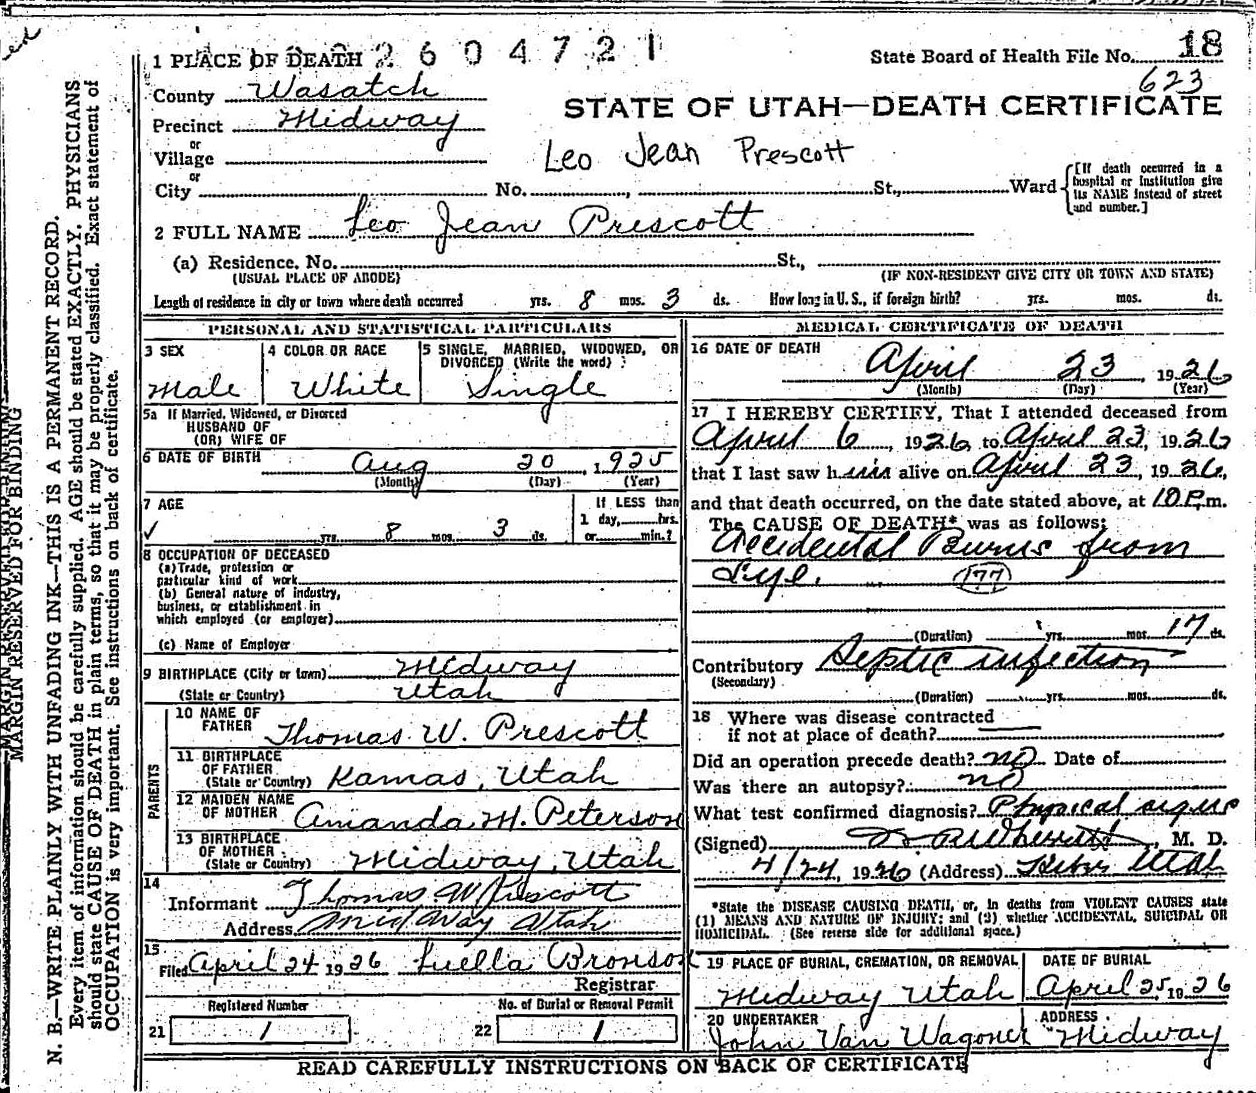 1 PLACE OF DEATH 2 6 0 4 7 2 1
State Board of Health File No. 18
623
County Wasatch
STATE OF UTAH—DEATH CERTIFICATE
Precinct Midway
or
Village
Leo Jean Prescott
or
City No. , St., Ward
[If death occurred in a hospital or institution give its NAME instead of street and number.]
2 FULL NAME Leo Jean Prescott
(a) Residence. No. St.,
(USUAL PLACE OF ABODE) (IF NON-RESIDENT GIVE CITY OR TOWN AND STATE)
Length of residence in city or town where death occurred yrs. 8 mos. 3 ds. How long in U. S., if foreign birth? yrs. mos. ds.
PERSONAL AND STATISTICAL PARTICULARS
3 SEX
Male
4 COLOR OR RACE
White
5 SINGLE, MARRIED, WIDOWED, OR DIVORCED (Write the word)
Single
5a If Married, Widowed, or Divorced
HUSBAND OF
(OR) WIFE OF
6 DATE OF BIRTH Aug 20, 1925
(Month) (Day) (Year)
7 AGE
✓ yrs. 8 mos. 3 ds.
If LESS than
1 day, hrs.
or min.?
8 OCCUPATION OF DECEASED
(a) Trade, profession or
particular kind of work
(b) General nature of industry,
business, or establishment in
which employed (or employer)
(c) Name of Employer
9 BIRTHPLACE (City or town) Midway
(State or Country) Utah
PARENTS
10 NAME OF
FATHER Thomas W. Prescott
11 BIRTHPLACE
OF FATHER
(State or Country) Kamas, Utah
12 MAIDEN NAME
OF MOTHER Amanda M. Peterson
13 BIRTHPLACE
OF MOTHER
(State or Country) Midway, Utah
14
Informant Thomas W Prescott
Address Midway Utah
15
Filed April 24 1926 Luella Bronson
Registrar
Registered Number
21 1
No. of Burial or Removal Permit
22 1
MEDICAL CERTIFICATE OF DEATH
16 DATE OF DEATH
April 23, 1926
(Month) (Day) (Year)
17 I HEREBY CERTIFY, That I attended deceased from
April 6, 1926, to April 23, 1926
that I last saw him alive on April 23, 1926,
and that death occurred, on the date stated above, at 10 P.m.
The CAUSE OF DEATH* was as follows:
Accidental Burns from
Lye. 177
(Duration) yrs. mos. 17 ds.
Contributory Septic infection
(Secondary)
(Duration) yrs. mos. ds.
18 Where was disease contracted
if not at place of death?
Did an operation precede death? no Date of
Was there an autopsy? no
What test confirmed diagnosis? Physical signs
(Signed) , M. D.
4/24, 1926 (Address) Heber Utah
*State the DISEASE CAUSING DEATH, or, in deaths from VIOLENT CAUSES state
(1) MEANS AND NATURE OF INJURY; and (2) whether ACCIDENTAL, SUICIDAL OR
HOMICIDAL. (See reverse side for additional space.)
19 PLACE OF BURIAL, CREMATION, OR REMOVAL
Midway Utah
DATE OF BURIAL
April 25, 1926
20 UNDERTAKER
John Van Wagoner
ADDRESS
Midway
READ CAREFULLY INSTRUCTIONS ON BACK OF CERTIFICATE
MARGIN RESERVED FOR BINDING
N. B.—WRITE PLAINLY WITH UNFADING INK—THIS IS A PERMANENT RECORD.
Every item of information should be carefully supplied. AGE should be stated EXACTLY. PHYSICIANS
should state CAUSE OF DEATH in plain terms, so that it may be properly classified. Exact statement of
OCCUPATION is very important. See instructions on back of certificate.